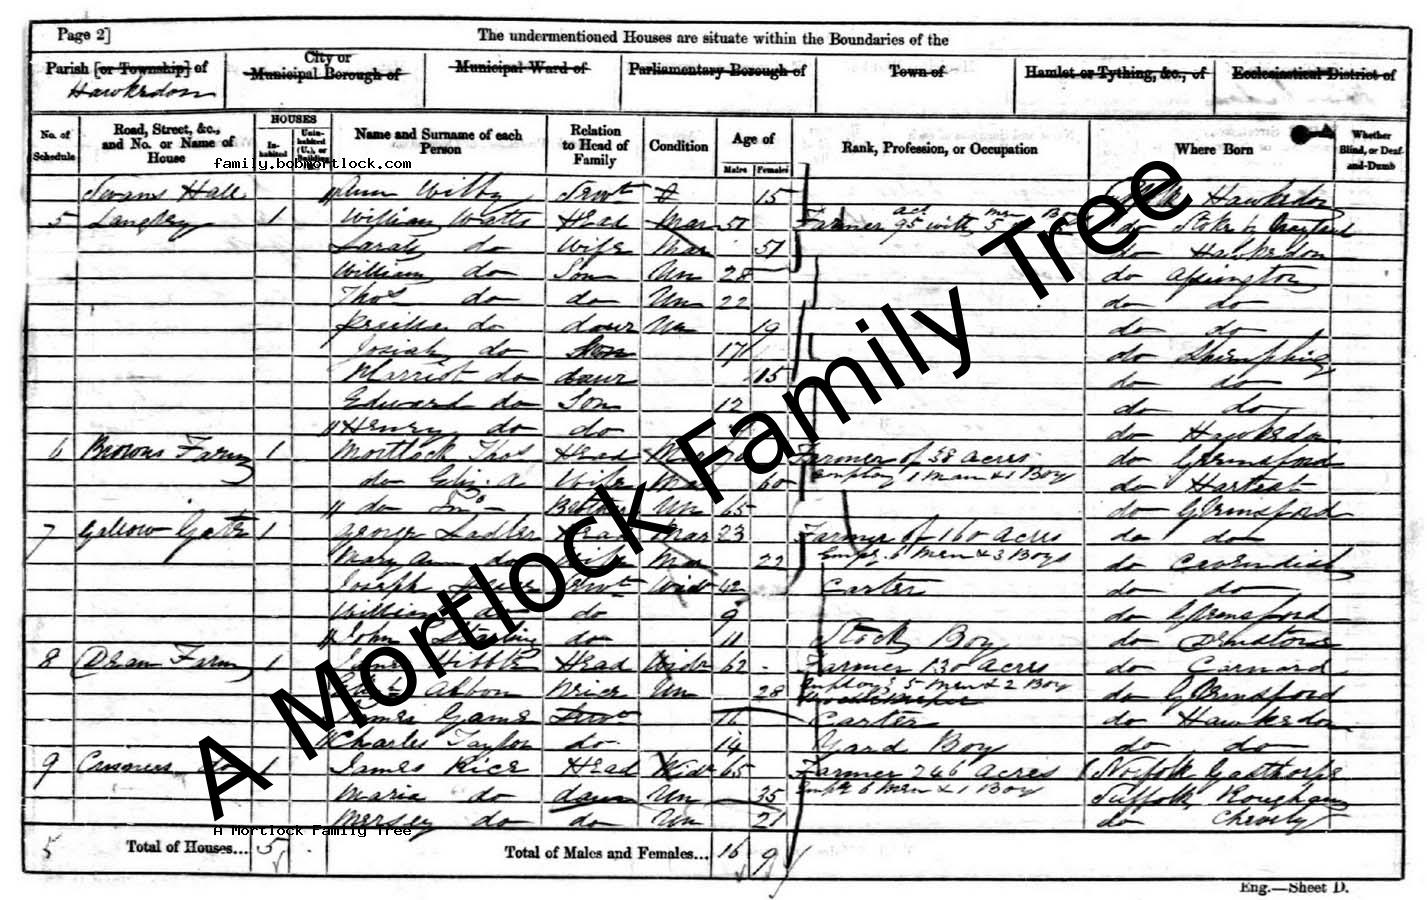 Page 2] The undermentioned Houses are situate within the Boundaries of the
Parish [or Township] of City or Municipal Borough of Municipal Ward of Parliamentary Borough of Town of Hamlet or Tything, &c., of Ecclesiastical District of
Hawkedon
No. of Schedule Road, Street, &c., and No. or Name of House HOUSES Inhabited Uninhabited (U.), or Building Name and Surname of each Person Relation to Head of Family Condition Age of Males Females Rank, Profession, or Occupation Where Born Whether Blind, or Deaf-and-Dumb
family.bobmortlock.com
Swans Hall Ann Wilby Servt 15 Hawkedon
5 Langley 1 William Watts Head Mar 51 Farmer 95 ac with 5 men do Stoke
Sarah do Wife Mar 51 do Hawkedon
William do Son Un 28 do
Thos do do Un 22 do do
do daur Un 19 do do
Josiah do Son 17 do Shimpling
Harriet do daur 15 do do
Edward do Son 12 do do
Henry do do do Hawkedon
6 Browns Farm 1 Mortlock Thos Head Mar Farmer of 58 acres do Glemsford
do Eliz. A Wife Mar 60 Employ 1 man & 1 Boy do Hartest
do Jno Brother Un 65 do Glemsford
7 Gallow Gate 1 George Sadler Head Mar 23 Farmer of 160 acres do do
Mary Ann do Wife Mar 22 Emp. 6 men & 3 Boys do Cavendish
Joseph Servt Widr 42 Carter do do
William do do 9 do Glemsford
John Starling do 11 Stock Boy do
8 Dean Farm 1 Hibble Head Widr 62 Farmer 130 acres do Cornard
Abbon Niece Un 28 Employs 5 men & 2 Boy Housekeeper do Glemsford
James Game Servt Carter do Hawkedon
Charles Taylor do 14 Yard Boy do do
9 do 1 James Rice Head Widr 65 Farmer 246 acres Norfolk Gasthorpe
Maria do daur Un 35 Empl 6 men & 1 Boy Suffolk Rougham
Mersey do do Un 21 do Chevely
A Mortlock Family Tree
A Mortlock Family Tree
5 Total of Houses... 5 Total of Males and Females... 16 9
Eng.—Sheet D.